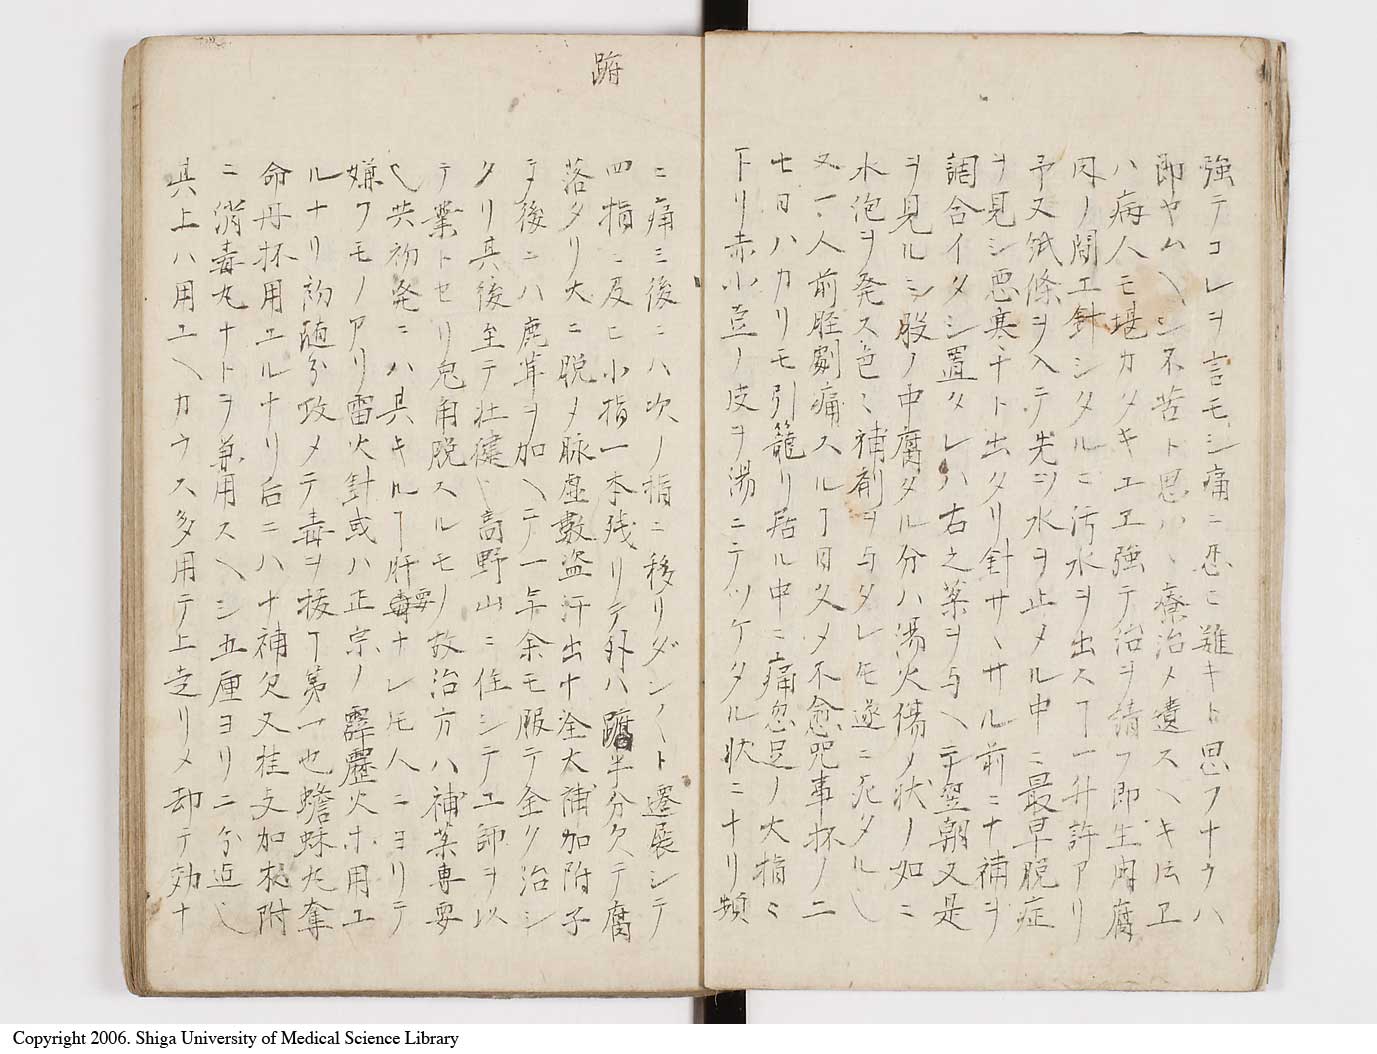 強テコレヲ言モシ痛ニ忍ヒ難キト思フナウハ
即ヤムヘシ不苦ト思ハヽ療治メ遺スヘキ伝ヱ
ハ病人モ堪カタキユヱ強テ治ヲ請フ即生肉腐
肉ノ間エ針シタルニ汚水ヲ出スヿ一升許アリ
予又紙條ヲ入テ先ツ水ヲ止メル中ニ最早脱症
ヲ見シ悪寒ナト出タリ針サヽサル前ニ十補ヲ
調合イタシ置タレハ右之薬ヲ与ヘテ翌朝又是
ヲ見ルシ股ノ中腐タル分ハ湯火傷ノ状ノ如ニ
水泡ヲ発ス色々補剤ヲ与タレモ遂ニ死タル乀
又一人前脛劇痛スルヿ日久メ不愈咒事杯ノ二
七日ハカリモ引籠リ居ル中ニ痛忽足ノ大指ミ
下リ赤小豆ノ皮ヲ湯ニテツケタル状ニナリ頻
跗
ニ痛三後ニハ次ノ指ニ移リダン〱ト遷展シテ
四指ニ及ヒ小指一本残リテ外ハ半分欠テ腐
落タリ大ニ脱メ脉虚数盗汗出十全大補加附子
ヲ後ニハ鹿茸ヲ加ヘテ一年余モ服テ全ク治シ
タリ其後至テ壮健乀高野山ニ住シテ工師ヲ以
テ業トセリ凡角脱スルモノ故治方ハ補薬専要
乀共初発ニハ其キルヿ肝要ナレ𪜈人ニヨリテ
嫌フモノアリ雷火針或ハ正宗ノ霹靂火ホ用ユ
ルナリ初随分攻メテ毒ヲ抜ヿ第一也蟾蛛丸奪
命丹杯用ユルナリ后ニハ十補又桂支加朮附
ニ消毒丸ナトヲ兼用スヘシ五厘ヨリ二分迄乀
其上ハ用ユヘカラス多用テ上走リメ却テ効ナ
Copyright 2006. Shiga University of Medical Science Library